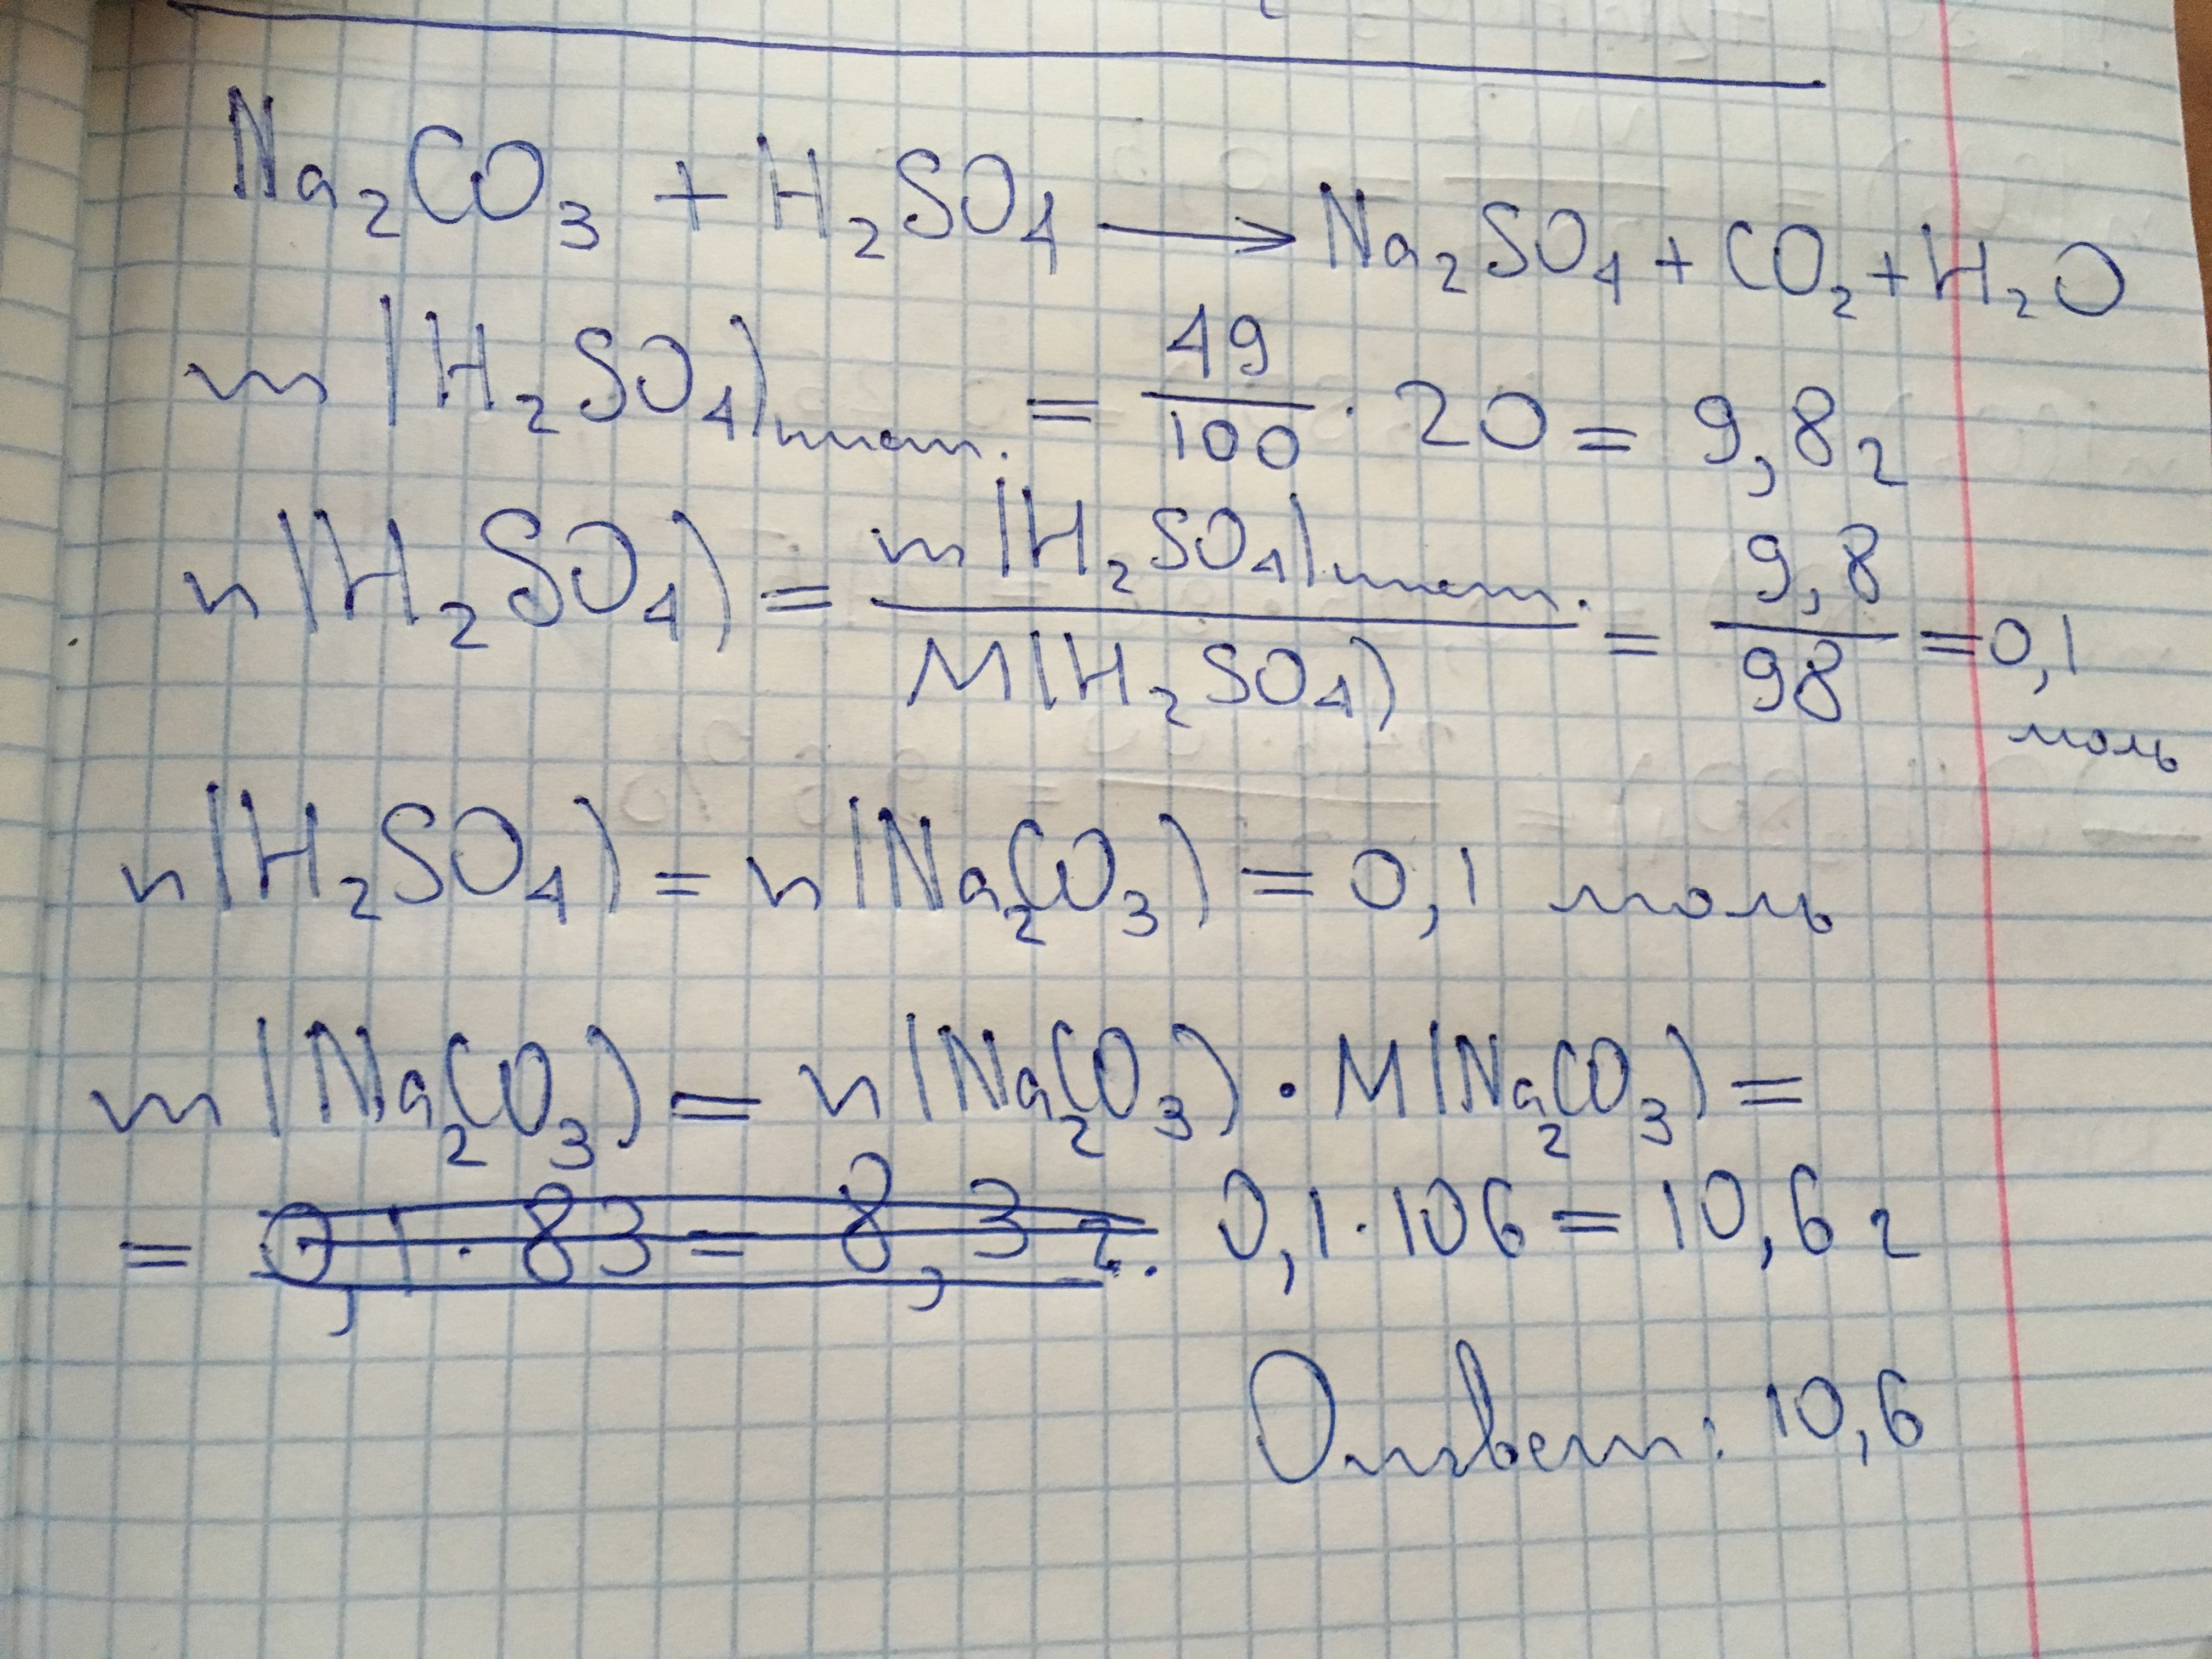 Na₂CO₃ + H₂SO₄ → Na₂SO₄ + CO₂ + H₂O
m(H₂SO₄)чист. = 49/100 · 20 = 9,8 г
n(H₂SO₄) = m(H₂SO₄)чист. / M(H₂SO₄) = 9,8/98 = 0,1 моль
n(H₂SO₄) = n(Na₂CO₃) = 0,1 моль
m(Na₂CO₃) = n(Na₂CO₃) · M(Na₂CO₃) =
= 0,1 · 83 = 8,3 г. 0,1 · 106 = 10,6 г
Ответ: 10,6